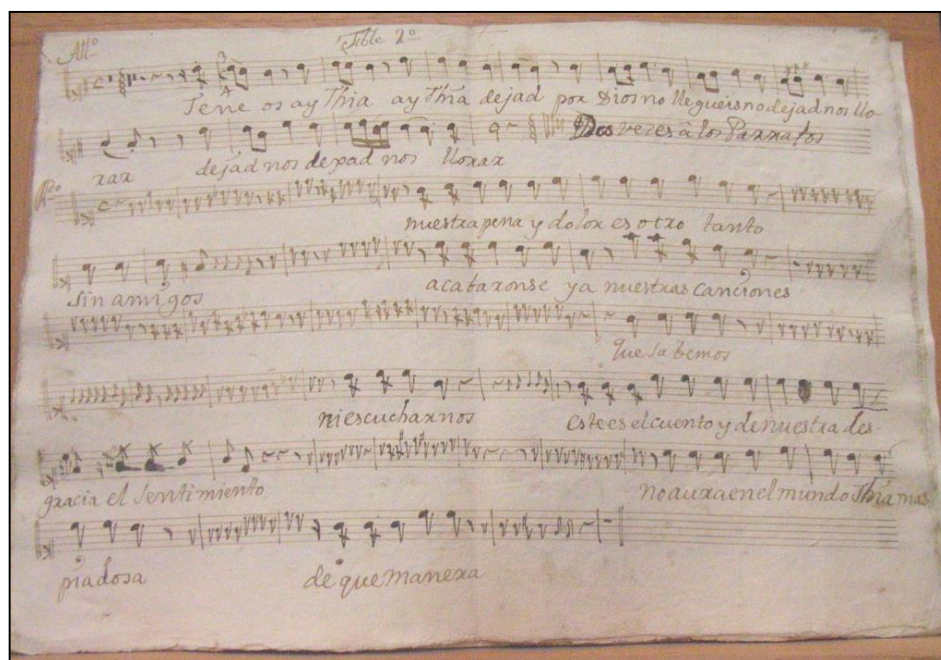 All.o Tiple 2o
Tene os ay Thia ay Thia dejad por Dios no llegueis no dejad nos llo-
rar dejad nos dejad nos llorar Dos vezes â los Parratos
R.do
nuestra pena y dolor es otro tanto
sin amigos acabaronse ya nuestras canciones
que sabemos
ni escucharnos este es el cuento y de nuestra des-
gracia el sentimiento no aura en el mundo Thia mas
piadosa de que manera